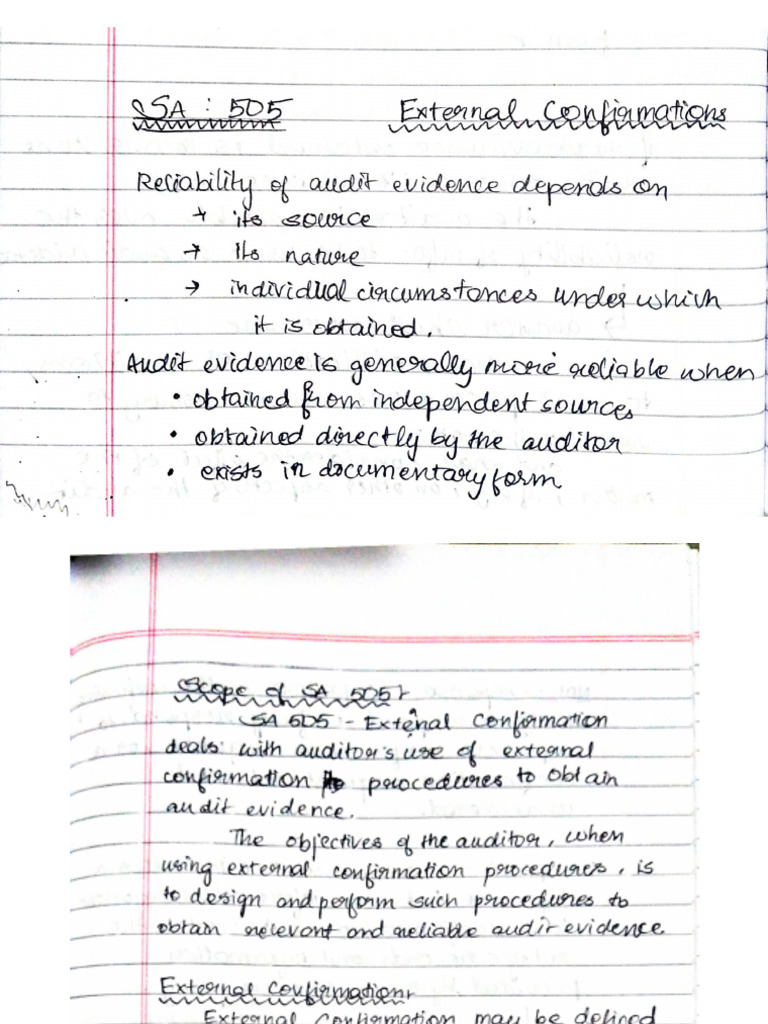 SA : 505 External Confirmations
Reliability of audit evidence depends on
→ its source
→ Its nature
→ individual circumstances under which
it is obtained.
Audit evidence is generally more reliable when
• obtained from independent sources
• obtained directly by the auditor
• exists in documentary form
Scope of SA 505:-
SA 505 - External Confirmation
deals with auditor's use of external
confirmation procedures to obtain
audit evidence.
The objectives of the auditor, when
using external confirmation procedures, is
to design and perform such procedures to
obtain relevant and reliable audit evidence.
External Confirmation:-
External Confirmation may be defined